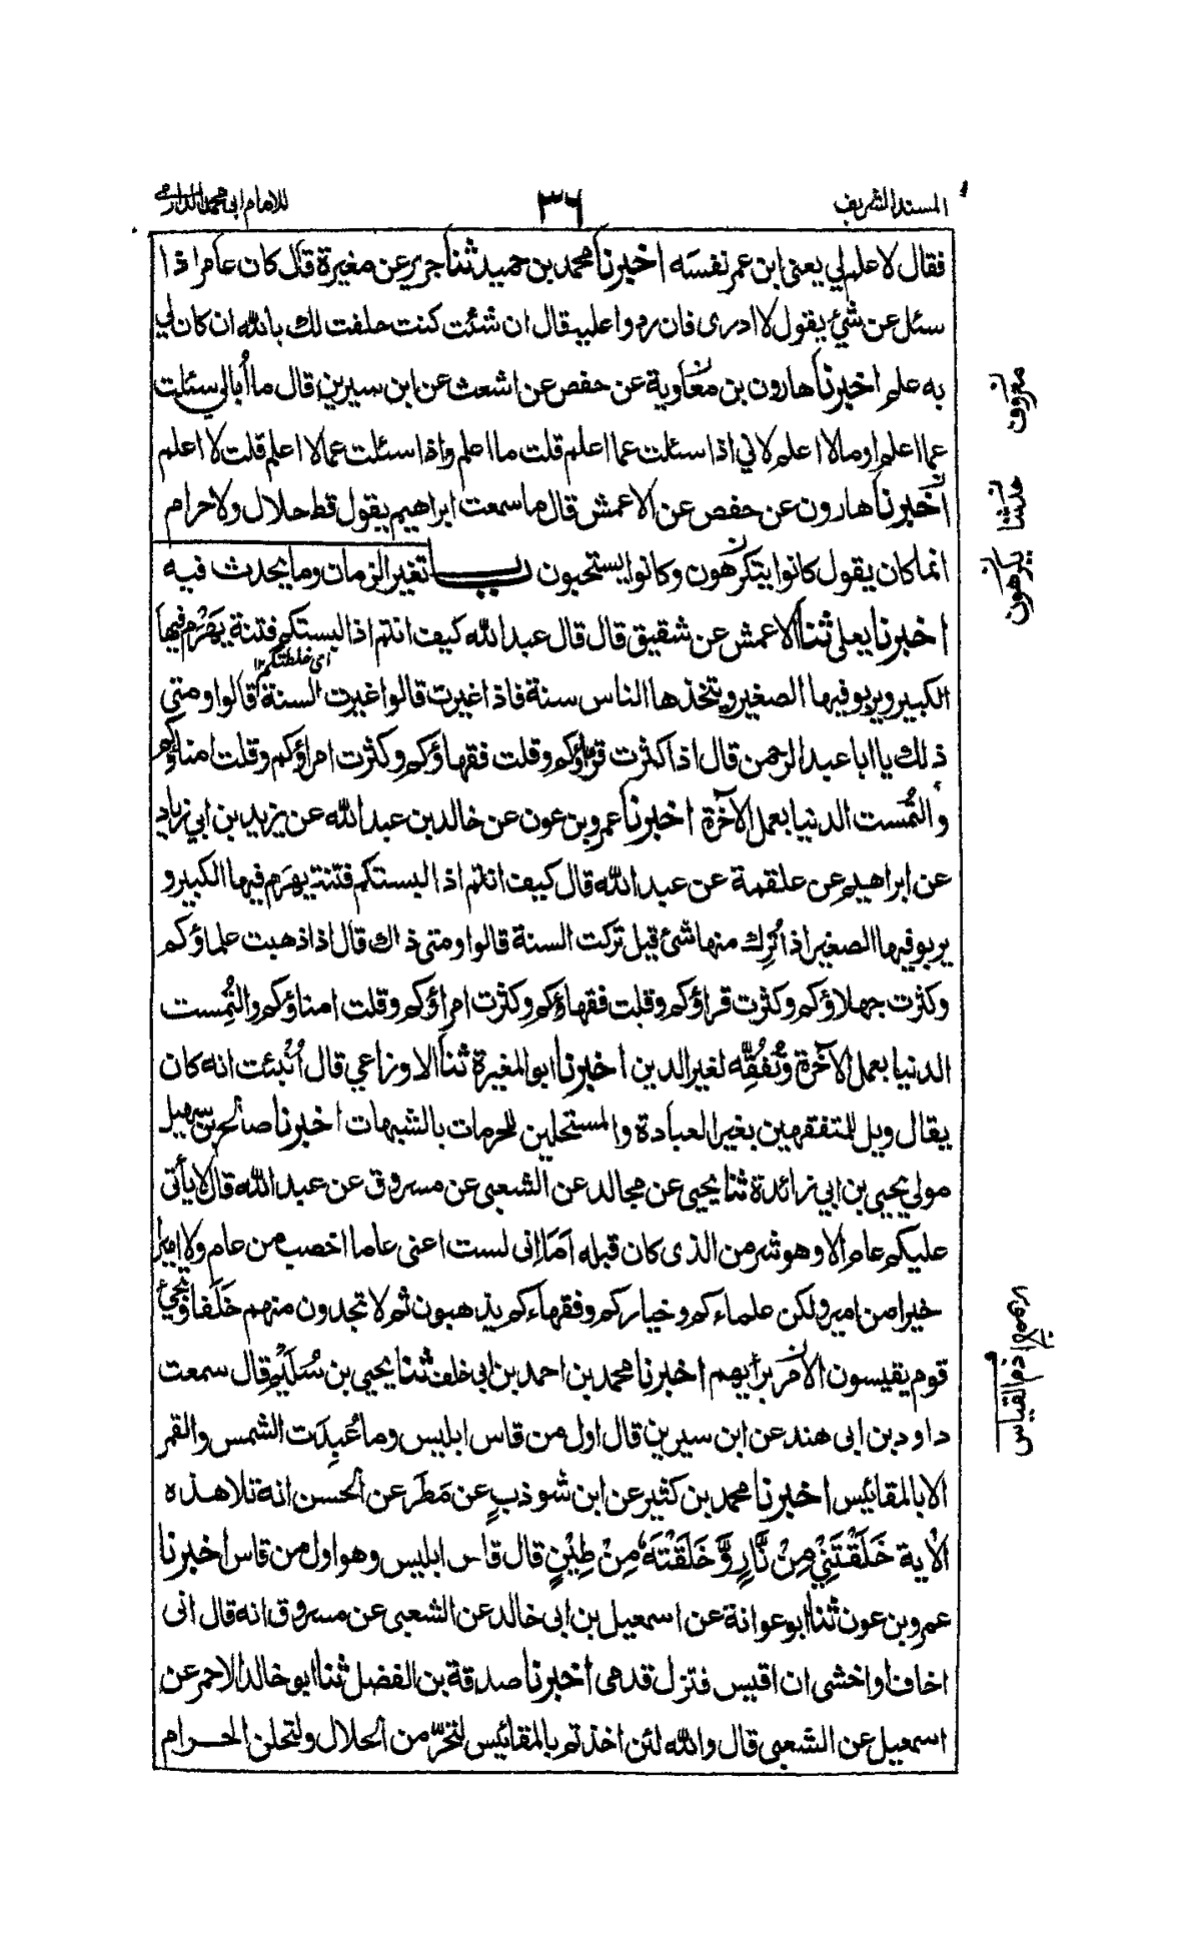 المسند الشريف
٣٦
للامام ابي محمد الدارمي
فقال لا علم لي يعني ابن عمر نفسه اخبرنا محمد بن حميد ثنا جرير عن مغيرة قال كان عامر اذا
سئل عن شئ يقول لا ادري فان ردوا عليه قال ان شئت كنت حلفت لك بالله ان كان لي
به علم اخبرنا هارون بن معاوية عن حفص عن اشعث عن ابن سيرين قال ما أبالي سئلت
عما اعلم او ما لا اعلم لاني اذا سئلت عما اعلم قلت ما اعلم واذا سئلت عما لا اعلم قلت لا اعلم
اخبرنا هارون عن حفص عن الاعمش قال ما سمعت ابراهيم يقول قط حلال ولا حرام
انما كان يقول كانوا يتكرهون وكانوا يستحبون باب تغير الزمان وما يحدث فيه
اخبرنا يعلى ثنا الاعمش عن شقيق قال قال عبد الله كيف انتم اذا لبستكم فتنة يهرم فيها
اى غلطتكم ١٢
الكبير ويربو فيها الصغير ويتخذها الناس سنة فاذا غيرت قالوا غيرت السنة قالوا ومتى
ذلك يا ابا عبد الرحمن قال اذا كثرت قراؤكم وقلت فقهاؤكم وكثرت امراؤكم وقلت امناؤكم
والتُمست الدنيا بعمل الآخرة اخبرنا عمرو بن عون عن خالد بن عبد الله عن يزيد بن ابي زياد
عن ابراهيم عن علقمة عن عبد الله قال كيف انتم اذا لبستكم فتنة يهرم فيها الكبير و
يربو فيها الصغير اذا تُرِك منها شئ قيل تركت السنة قالوا ومتى ذاك قال اذا ذهبت علماؤكم
وكثرت جهلاؤكم وكثرت قراؤكم وقلت فقهاؤكم وكثرت امراؤكم وقلت امناؤكم والتُمِست
الدنيا بعمل الآخرة وتُفُقِّه لغير الدين اخبرنا ابو المغيرة ثنا الاوزاعي قال أُنْبئت انه كان
يقال ويل للمتفقهين بغير العبادة والمستحلين للحرمات بالشبهات اخبرنا صالح بن سهيل
مولى يحيى بن ابي زائدة ثنا يحيى عن مجالد عن الشعبي عن مسروق عن عبد الله قال لا يأتي
عليكم عام الا وهو شر من الذى كان قبله اَمَا انى لست اعنى عاما اخصب من عام ولا اميرا
خيرا من امير ولكن علماءكم وخياركم وفقهاءكم يذهبون ثم لا تجدون منهم خَلَفا ويجئ
قوم يقيسون الامر برأيهم اخبرنا محمد بن احمد بن ابي خلف ثنا يحيى بن سُلَيْم قال سمعت
داود بن ابى هند عن ابن سيرين قال اول من قاس ابليس وما عُبِدَت الشمس والقمر
الا بالمقائيس اخبرنا محمد بن كثير عن ابن شوذبٍ عن مَطَر عن الحسن انه تلا هذه
الْاية خَلَقْتَنِيْ مِنْ نَّارٍ وَّخَلَقْتَهٗ مِنْ طِيْنٍ قال قاس ابليس وهو اول من قاس اخبرنا
عمرو بن عون ثنا ابو عوانة عن اسمعيل بن ابى خالد عن الشعبي عن مسروق انه قال انى
اخاف او اخشى ان اقيس فتزل قدمى اخبرنا صدقة بن الفضل ثنا ابو خالد الاحمر عن
اسمعيل عن الشعبي قال والله لئن اخذتم بالمقائيس لتحرّمن الحلال ولتحلن الحرام
معروف
حدثنا
يكرهون
ذم القياس